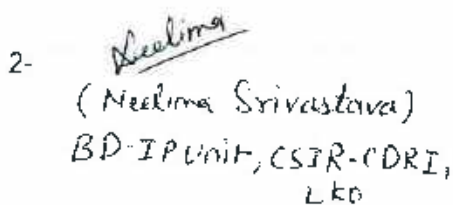 2- Neelima
(Neelima Srivastava)
BD-IP Unit, CSIR-CDRI,
LKO